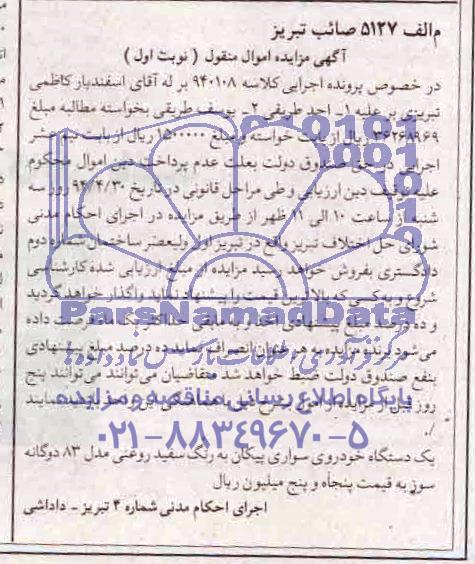 م الف ۵۱۲۷ صائب تبریز
آگهی مزایده اموال منقول ( نوبت اول )
در خصوص پرونده اجرایی کلاسه ۹۴۰۱۰۸ بر له آقای اسفندیار کاظمی
تبریزی بر علیه ۱_ احد طریقی ۲_ یوسف طریقی بخواسته مطالبه مبلغ
۳۶۲۶۸۹۶۹ ریال از بابت خواسته و مبلغ ۱۵۰۰۰۰۰ ریال از بابت نیم عشر
اجرایی در حق صندوق دولت بعلت عدم پرداخت دین اموال محکوم
علیه توقیف دین ارزیابی و طی مراحل قانونی در تاریخ ۹۴/۴/۳۰ روز سه
شنبه از ساعت ۱۰ الی ۱۱ ظهر از طریق مزایده در اجرای احکام مدنی
شورای حل اختلاف تبریز واقع در تبریز اول ولیعصر ساختمان شماره دوم
دادگستری بفروش خواهد رسید مزایده از مبلغ ارزیابی شده کارشناسی
شروع و به کسی که بالاترین قیمت را پیشنهاد نماید واگذار خواهد گردید
و ده درصد مبلغ پیشنهادی اخذ و به مابقی حداکثر یک ماه فرصت داده
می شود برنده مزایده به هر عنوان انصراف نماید ده درصد مبلغ پیشنهادی
بنفع صندوق دولت ضبط خواهد شد متقاضیان می توانند می توانند پنج
روز قبل از مزایده از اموال
./
یک دستگاه خودروی سواری پیکان به رنگ سفید روغنی مدل ۸۳ دوگانه
سوز به قیمت پنجاه و پنج میلیون ریال
اجرای احکام مدنی شماره ۴ تبریز - داداشی
ParsNamadData
پایگاه اطلاع رسانی مناقصه و مزایده
۰۲۱-۸۸۳۴۹۶۷۰-۵